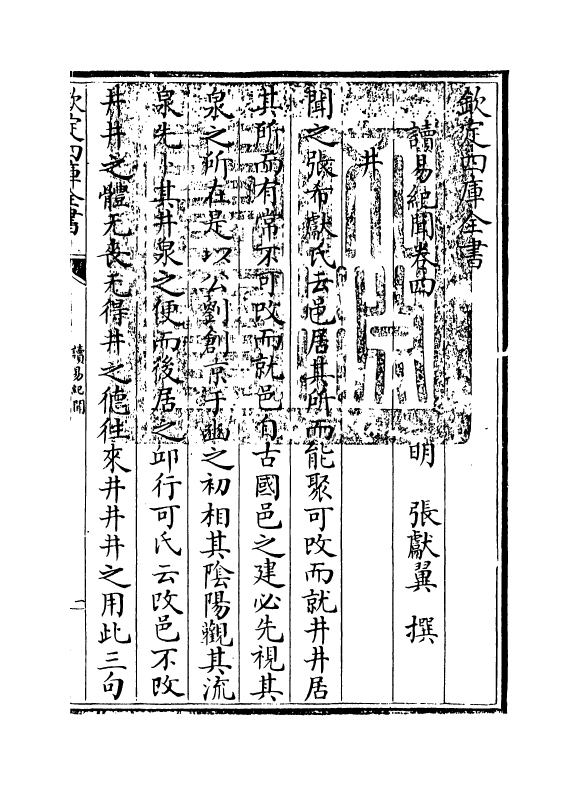 欽定四庫全書
讀易紀聞卷四
明 張獻翼 撰
井
聞之張布獻氏云邑居其所而能聚可改而就井井居
其所而有常不可改而就邑自古國邑之建必先視其
泉之所在是以公劉創京于豳之初相其陰陽觀其流
泉先卜其井泉之便而後居之邱行可氏云改邑不改
井井之體无喪无得井之德往來井井井之用此三句
欽定四庫全書
讀易紀聞